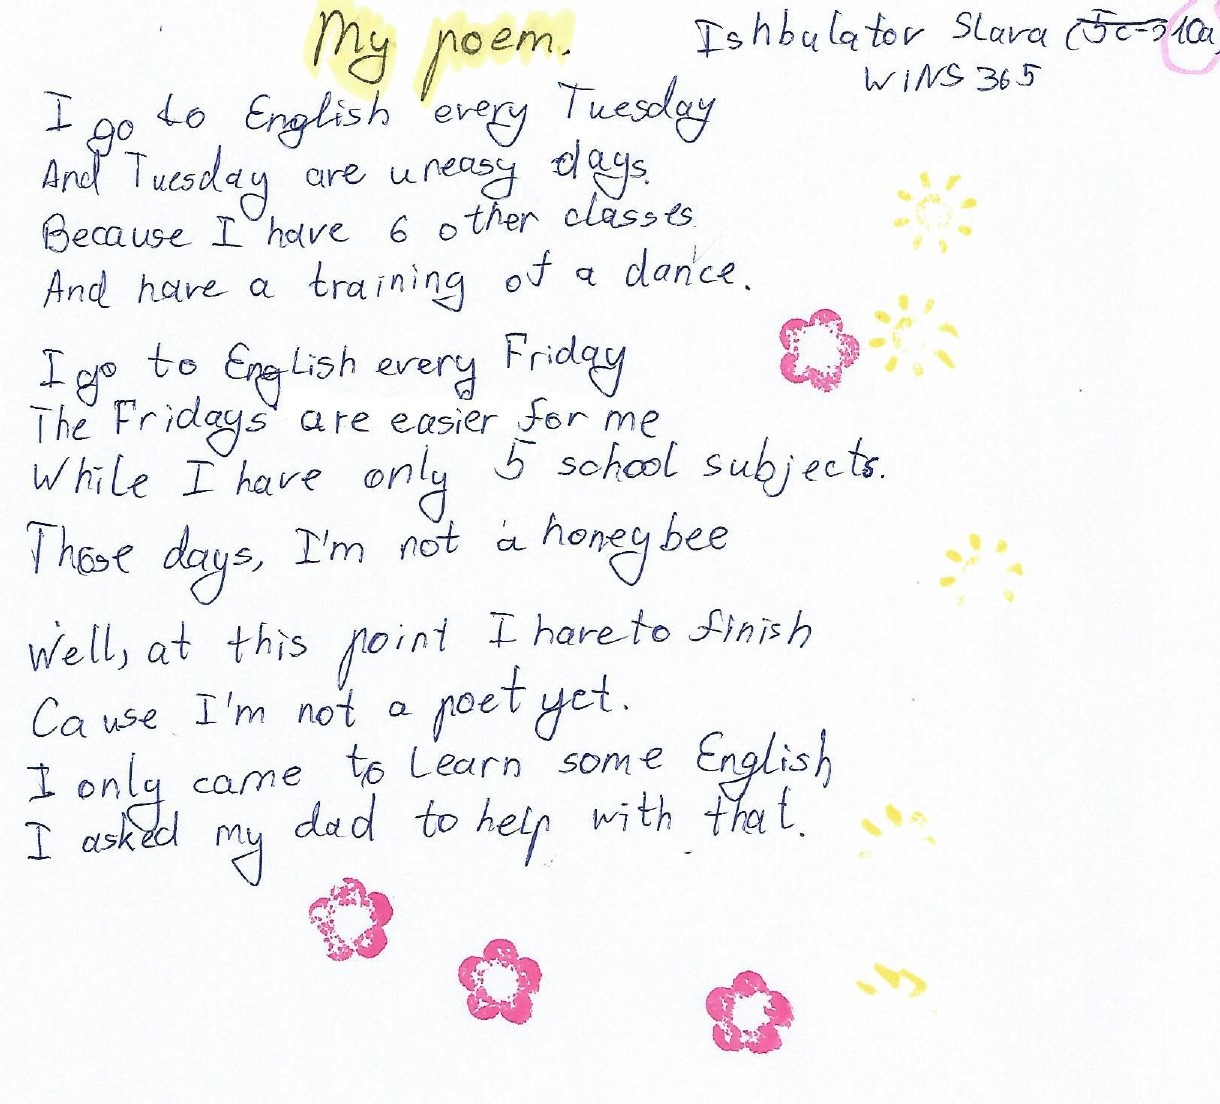 My poem.
Ishbulator Slava (5c-) 10a
WINS 365
I go to English every Tuesday
And Tuesday are uneasy days.
Because I have 6 other classes
And have a training of a dance.
I go to English every Friday
The Fridays are easier for me
While I have only 5 school subjects.
Those days, I'm not a honeybee
Well, at this point I have to finish
Cause I'm not a poet yet.
I only came to Learn some English
I asked my dad to help with that.